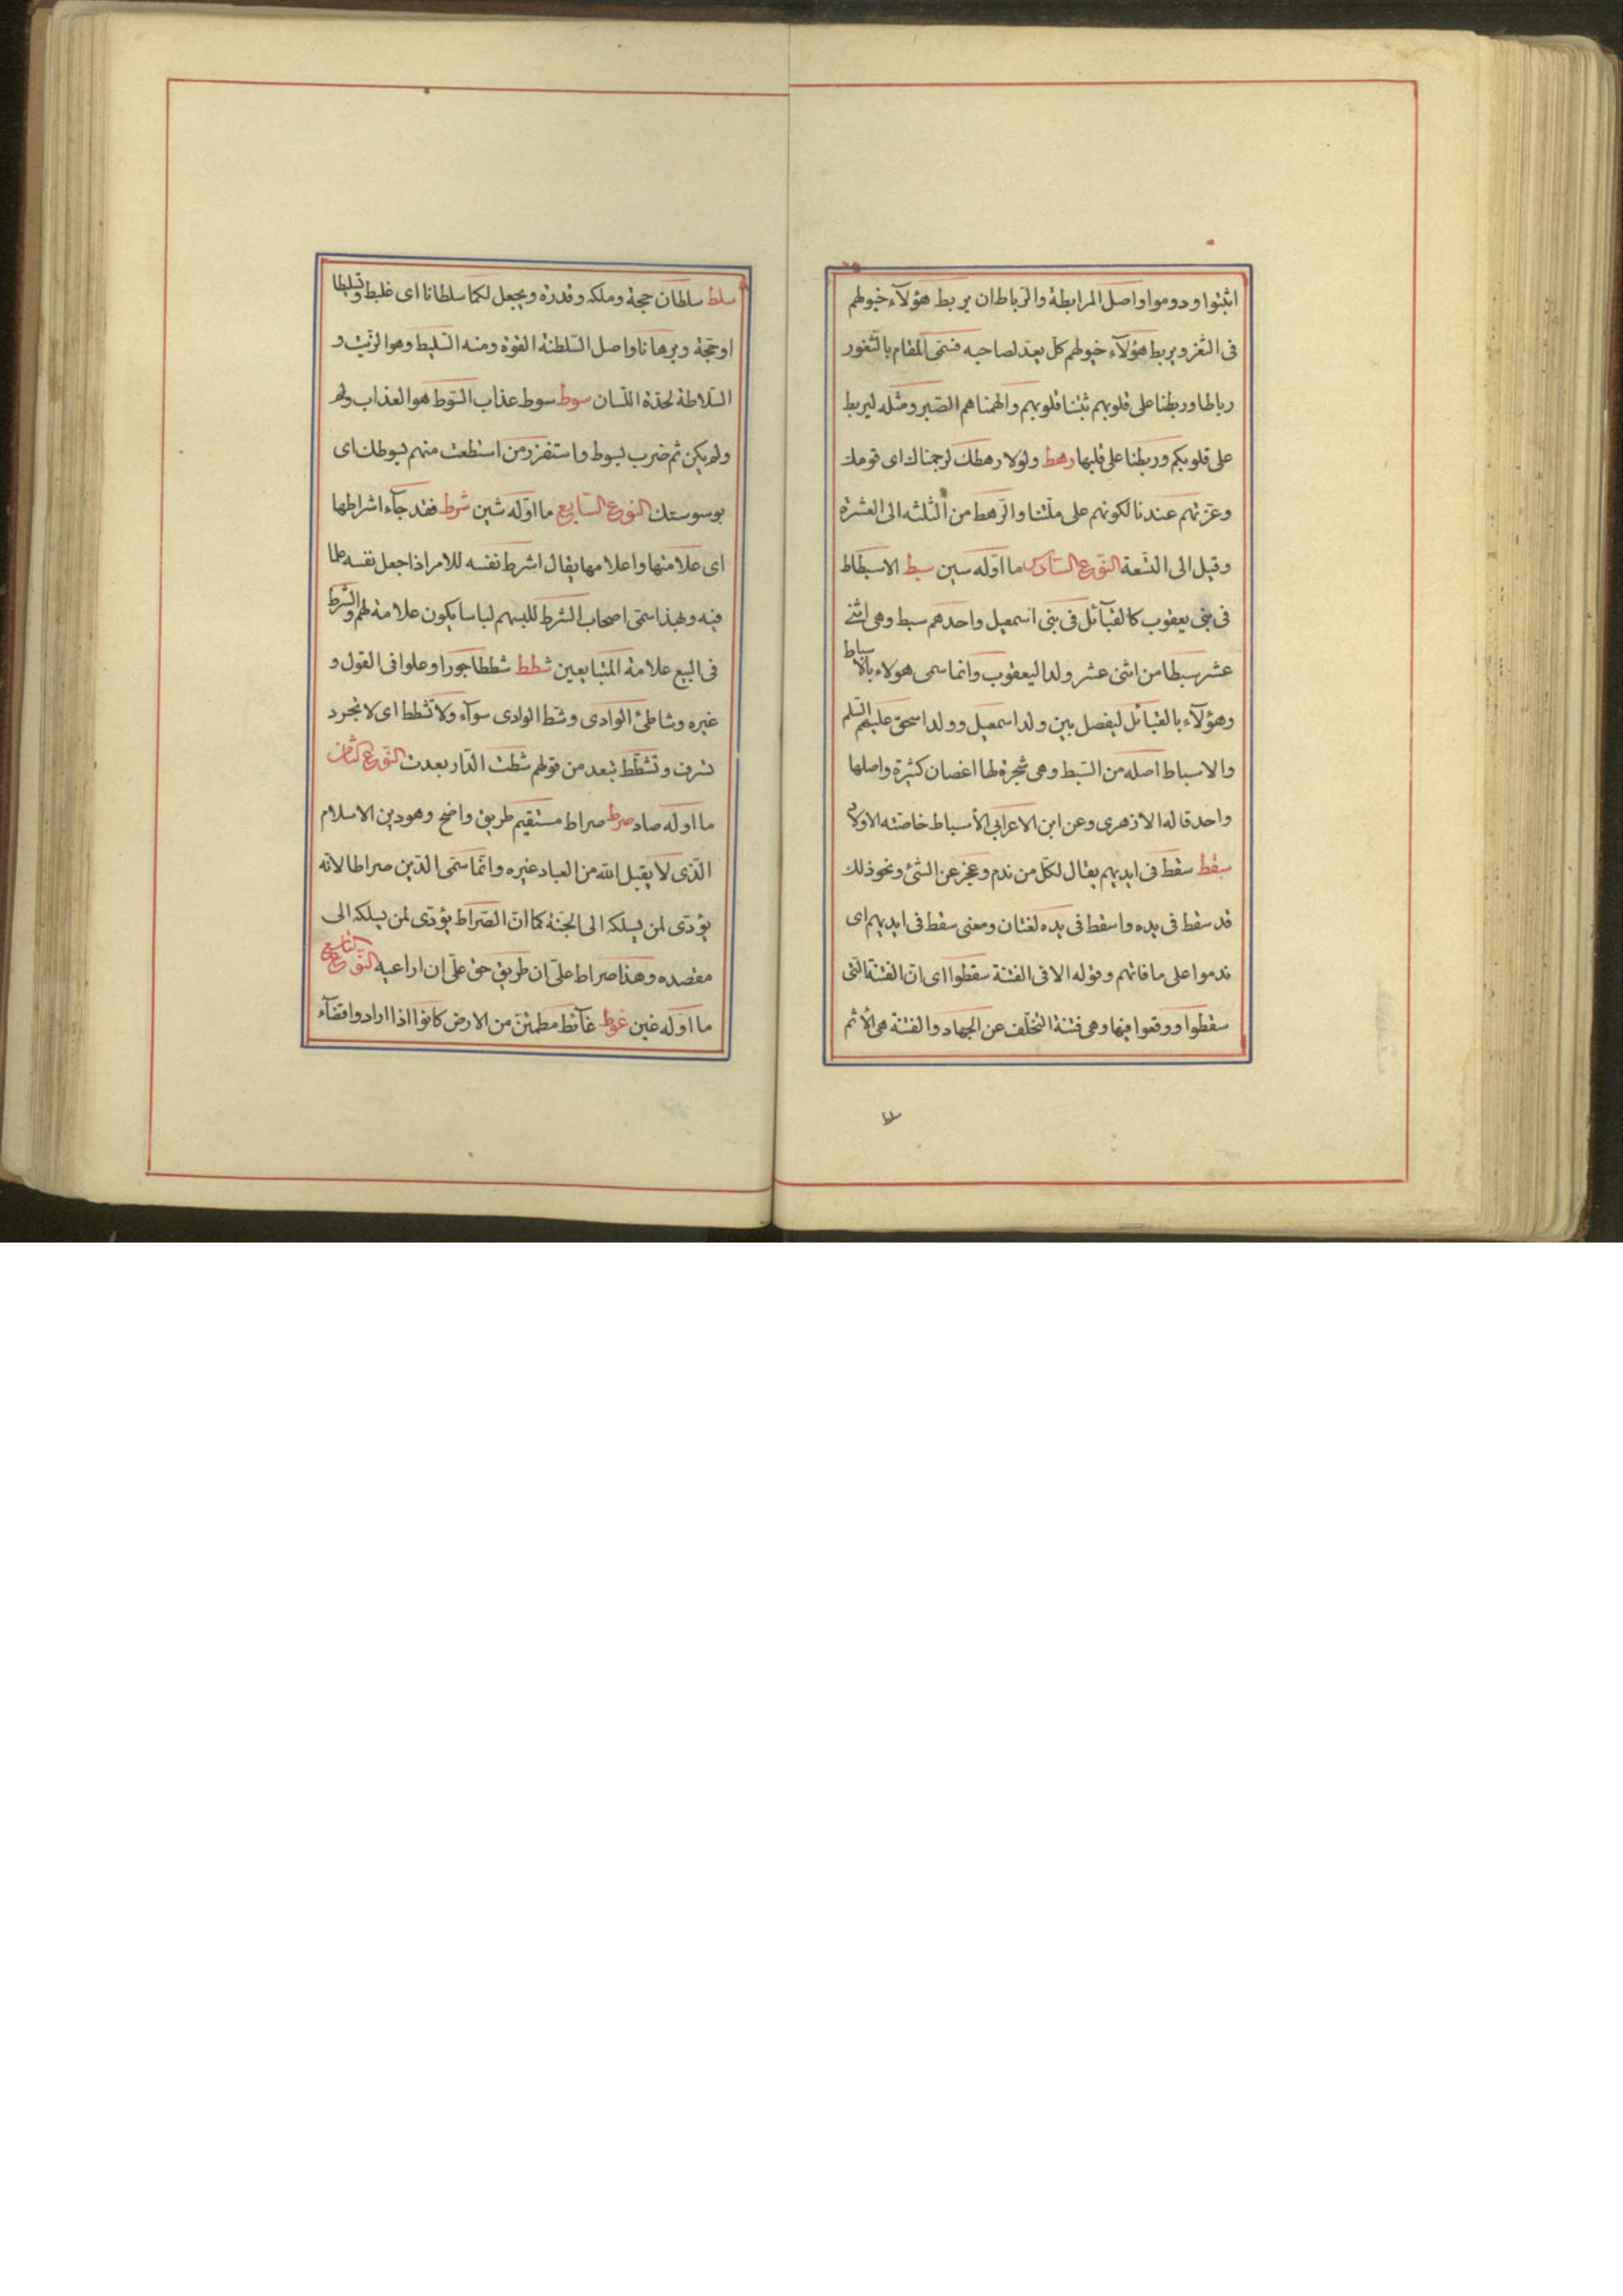 اثبتوا ودوموا واصل المرابطة والرباط ان يربط هؤلآء خيولهم
فى الثغر ويربط هؤلآء خيولهم كل يعد لصاحبه فسمى المقام بالثغور
رباطا وربطنا على قلوبهم ثبتنا قلوبهم والهمناهم الصبر ومثله ليربط
على قلوبكم وربطنا على قلبها رهط ولولا رهطك لرجمناك اى قومك
وعزتهم عندنا لكونهم على ملتنا والرهط من الثلثه الى العشرة
وقيل الى التسعة النوع السادس ما اوله سين سبط الاسباط
فى بنى يعقوب كالقبآئل فى بنى اسمعيل واحدهم سبط وهى اثنى
عشر سبطا من اثنى عشر ولدا ليعقوب وانما سمى هولاء بالاسباط
وهؤلآء بالقبآئل ليفصل بين ولد اسمعيل وولد اسحق عليهم السلم
والاسباط اصله من السبط وهى شجرة لها اغصان كثيرة واصلها
واحد قاله الازهرى وعن ابن الاعرابى الأسباط خاصته الاولاد
سقط سقط فى ايديهم يقال لكل من ندم وعجز عن الشئ ونحو ذلك
قد سقط فى يده واسقط فى يده لغتان ومعنى سقط فى ايديهم اى
ندموا على ما فاتهم وقوله الا فى الفتنة سقطوا اى ان الفتنة التى
سقطوا ووقعوا فيها وهى فتنة التخلف عن الجهاد والفتنة هى الأثم
سلط
سلط سلطان حجة وملكه وقدرة ويجعل لكما سلطانا اى غلبط وتسليطا
او حجة وبرهانا واصل السلطنة القوة ومنه السليط وهو الزيت و
السلاطة لحدة اللسان سوط سوط عذاب السوط هو العذاب
ولم يكن ثم ضرب بسوط واستفزز من استطعت منهم بسوطك اى
بوسوستك النوع السابع ما اوله شين شرط فقد جآء اشراطها
اى علامتها واعلامها يقال اشرط نفسه للامر اذا جعل نفسه علما
فيه وبهذا سمى اصحاب الشرط للبسهم لباسا يكون علامة لهم والشرط
فى البيع علامة المتبايعين شطط شططا جورا وعلوا فى القول و
غيره وشاطئ الوادى وشط الوادى سوآء ولا تشطط اى لا تجر د
تسرف وتشطط تبعد من قولهم شطت الدار بعدت النوع الثامن
ما اوله صاد صرط صراط مستقيم طريق واضح وهو دين الاسلام
الذى لا يقبل الله من العباد غيره وانما سمى الدين صراطا لانه
يؤدى لمن يسلكه الى الجنة كما ان الصراط يؤدى لمن يسلكه الى
مقصده وهذا صراط على ان طريق حق على ان اراعيه النوع التاسع
ما اوله غين غوط غآئط مطمئن من الارض كانوا اذا ارادوا قضآء